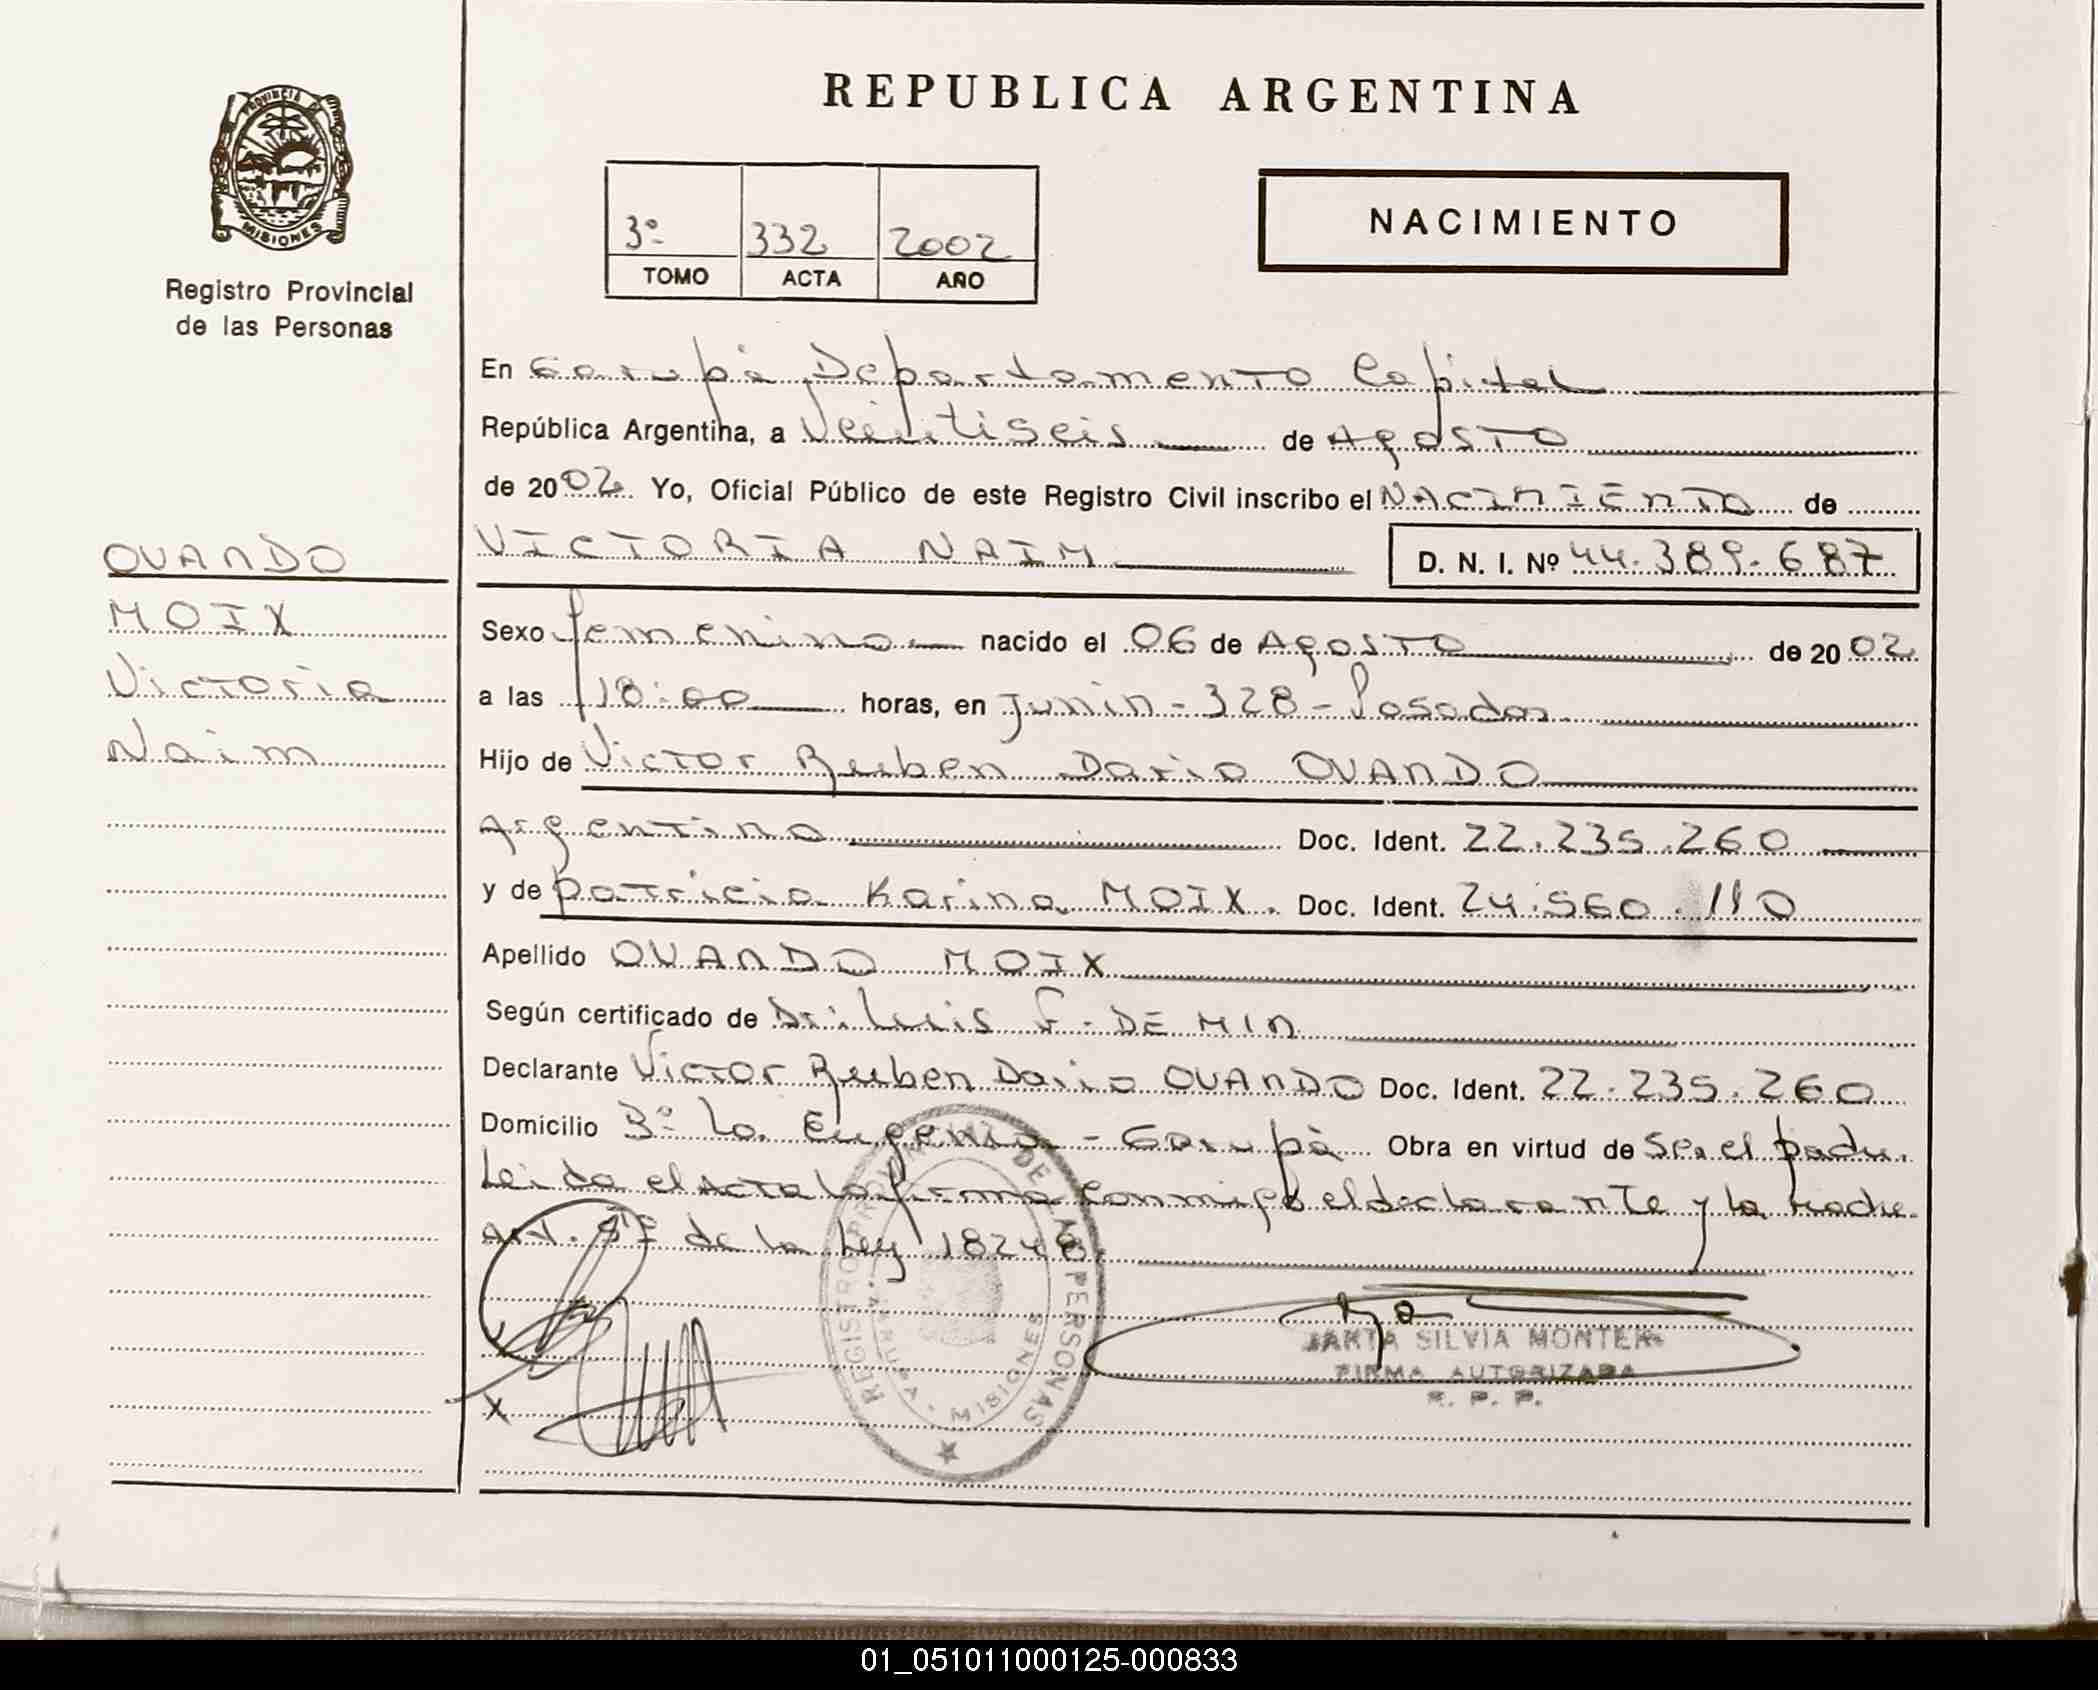 REPUBLICA ARGENTINA
PROVINCIA DE
MISIONES
Registro Provincial
de las Personas
3º 332 2002
TOMO ACTA AÑO
NACIMIENTO
En Garupá Departamento Capital
República Argentina, a Veintiseis de Agosto
de 2002 Yo, Oficial Público de este Registro Civil inscribo el NACIMIENTO de
VICTORIA NAIM D. N. I. Nº 44.389.687
OVANDO
MOIX
Victoria
Naim
Sexo femenino nacido el 06 de Agosto de 2002
a las 18:00 horas, en Junin - 328 - Posadas.
Hijo de Victor Ruben Dario OVANDO
Argentino Doc. Ident. 22.235.260
y de Patricia Karina MOIX. Doc. Ident. 24.560.110
Apellido OVANDO MOIX
Según certificado de Dr: Luis F. DE MIN
Declarante Victor Ruben Dario OVANDO Doc. Ident. 22.235.260
Domicilio Bº La Eugenia - Garupá Obra en virtud de Ser el padre.
Leida el Acta la firma conmigo el declarante y la madre.
Art. de la Ley 18248.
REGISTRO PROVINCIAL DE LAS PERSONAS
GARUPA - MISIONES
X
SILVIA MONTER
FIRMA AUTORIZADA
R. P. P.
01_051011000125-000833